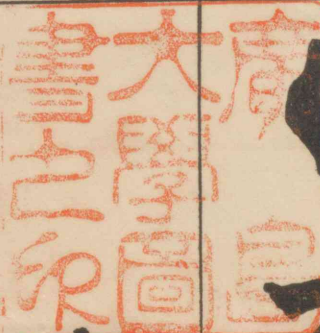 大學圖
書之印